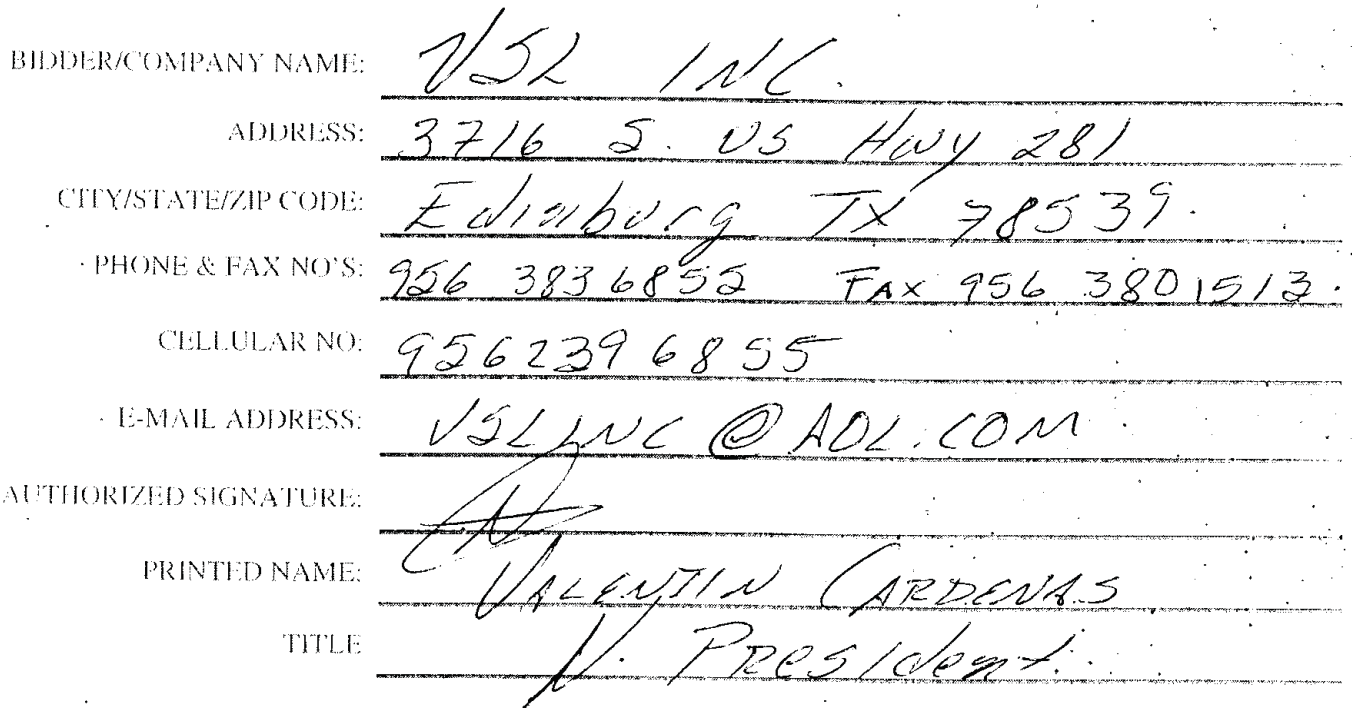 BIDDER/COMPANY NAME: VSL INC.
ADDRESS: 3716 S. US HWY 281
CITY/STATE/ZIP CODE: Edinburg TX 78539.
PHONE & FAX NO'S: 956 383 6855 FAX 956 380 1512.
CELLULAR NO: 956 239 6855
E-MAIL ADDRESS: VSLINC@AOL.COM
AUTHORIZED SIGNATURE:
PRINTED NAME: VALENTIN CARDENAS
TITLE V. PRESIdent.